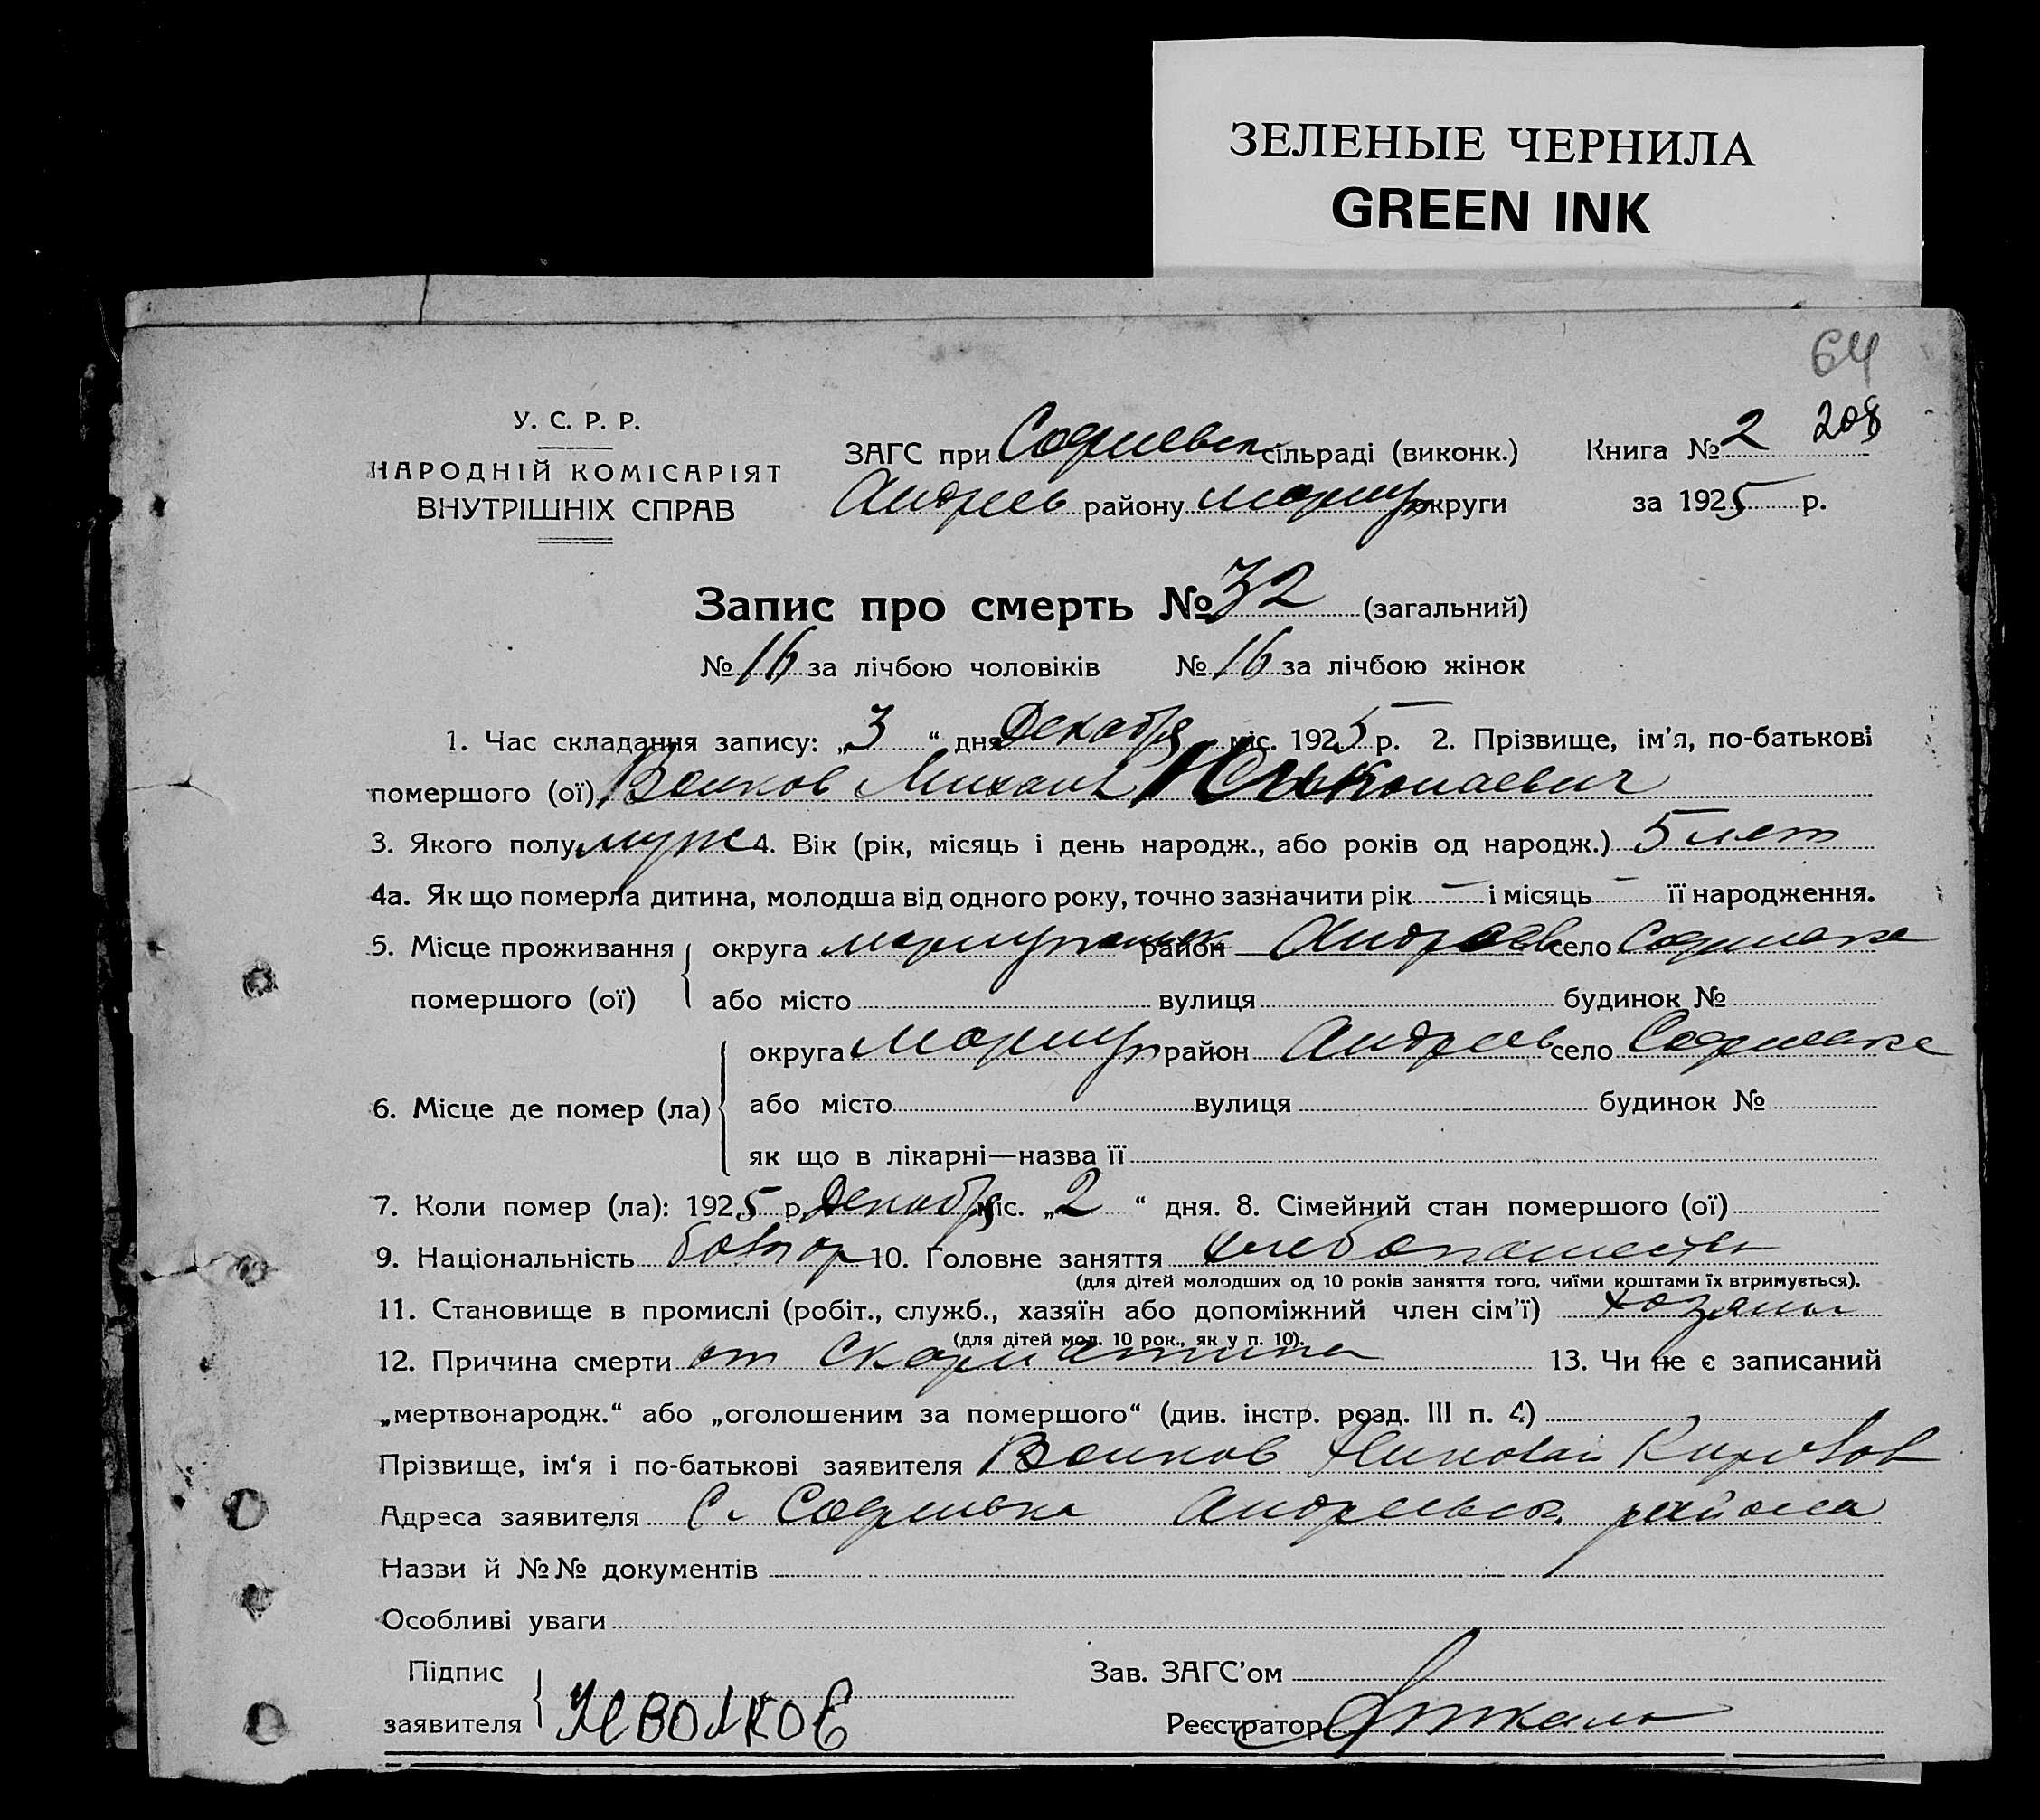 ЗЕЛЕНЫЕ ЧЕРНИЛА
GREEN INK
64
208
У. С. Р. Р.
НАРОДНІЙ КОМІСАРІЯТ
ВНУТРІШНІХ СПРАВ
ЗАГС при Софиевск сільраді (виконк.) Книга № 2
Андреев району мариуп округи за 1925 р.
Запис про смерть № 32 (загальний)
№ 16 за лічбою чоловіків № 16 за лічбою жінок
1. Час складання запису: „3“ дня Декабря міс. 1925 р. 2. Прізвище, ім'я, по-батькові
помершого (ої) Волков Михаил Николаевич
3. Якого полу муж 4. Вік (рік, місяць і день народж., або років од народж.) 5 лет
4а. Як що померла дитина, молодша від одного року, точно зазначити рік — і місяць — її народження.
5. Місце проживання округа мариупольск район Андреев село Софиевка
помершого (ої) або місто вулиця будинок №
округа мариуп район Андреев село Софиевка
6. Місце де помер (ла) або місто вулиця будинок №
як що в лікарні—назва її
7. Коли помер (ла): 1925 р. Декабря міс. „2“ дня. 8. Сімейний стан помершого (ої)
9. Національність 10. Головне заняття хлебопашество
(для дітей молодших од 10 років заняття того, чиїми коштами їх втримується).
11. Становище в промислі (робіт., служб., хазяїн або допоміжний член сім'ї) хозяин
(для дітей мол. 10 рок., як у п. 10).
12. Причина смерти от Скарлатина 13. Чи не є записаний
„мертвонародж.“ або „оголошеним за помершого“ (див. інстр. розд. III п. 4)
Прізвище, ім'я і по-батькові заявителя Волков Николай
Адреса заявителя С. Софиевка Андреевск. района
Назви й №№ документів
Особливі уваги
Підпис Зав. ЗАГС'ом
заявителя Н Волков Реєстратор